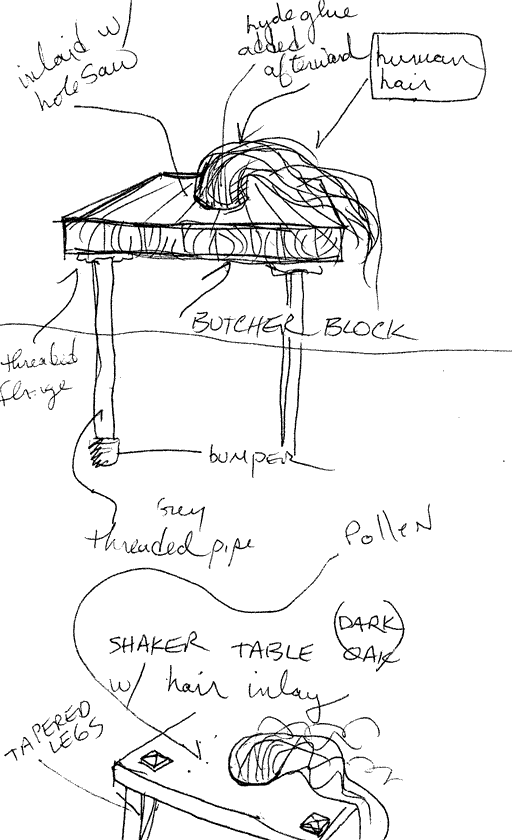 inlaid w/
hole saw
hyde glue
added
afterward
human
hair
BUTCHER BLOCK
threaded
flange
bumper
Grey
threaded pipe
Pollen
SHAKER TABLE
DARK
OAK
w/ hair inlay
TAPERED
LEGS